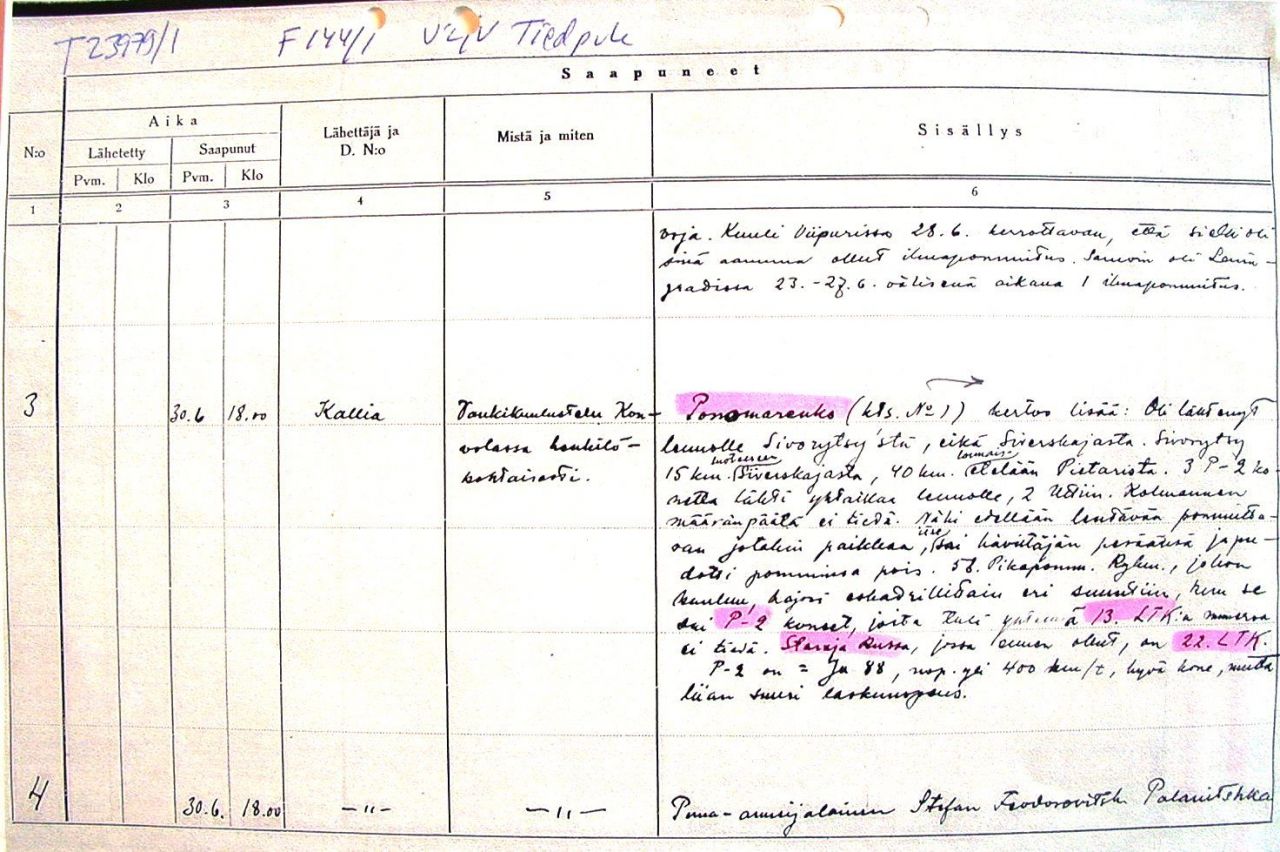 T23979/1 F144/1 Tiedpvk
Saapuneet
N:o
Aika
Lähetetty
Saapunut
Pvm. Klo Pvm. Klo
Lähettäjä ja
D. N:o
Mistä ja miten
Sisällys
1 2 3 4 5 6
voja. Kuuli Viipurissa 28.6. kerrottavan, että siellä oli
sinä aamuna ollut ilmapommitus. Samoin oli Lenin-
gradissa 23.-27.6. välisenä aikana 1 ilmapommitus.
3
30.6 18.00
Kallia
Vankikuulustelu Kou-
volassa henkilö-
kohtaisesti.
Ponomarenko (kts. No 1) kertoo lisää: Oli lähtenyt
lennolle Sivorytsy'stä, eikä Siverskajasta. Sivorytsy
15 km. luoteeseen Siverskajasta, 40 km. etelään Pietarista. 3 P-2 ko-
netta lähti yhtaikaa lennolle, 2 Uttiin. Kolmannen
määränpäätä ei tiedä. Näki edellään lentävän pommitta-
van jotakin paikkaa, itse sai hävittäjän peräänsä ja pu-
dotti pomminsa pois. 58. Pikapomm. Rykm., johon
kuuluu, hajosi eskadrillittain eri suuntiin, kun se
sai P-2 koneet, joita tuli 13. LTK:n numeroa
ei tiedä. Staraja Russa, jossa ennen ollut, on 22. LTK.
P-2 on = Ju 88, nop. yli 400 km/t, hyvä kone, mutta
liian suuri laskunopeus.
4
30.6. 18.00
—"—
—"—
Puna-armeijalainen Stefan Feodorovitsh Palanitshka